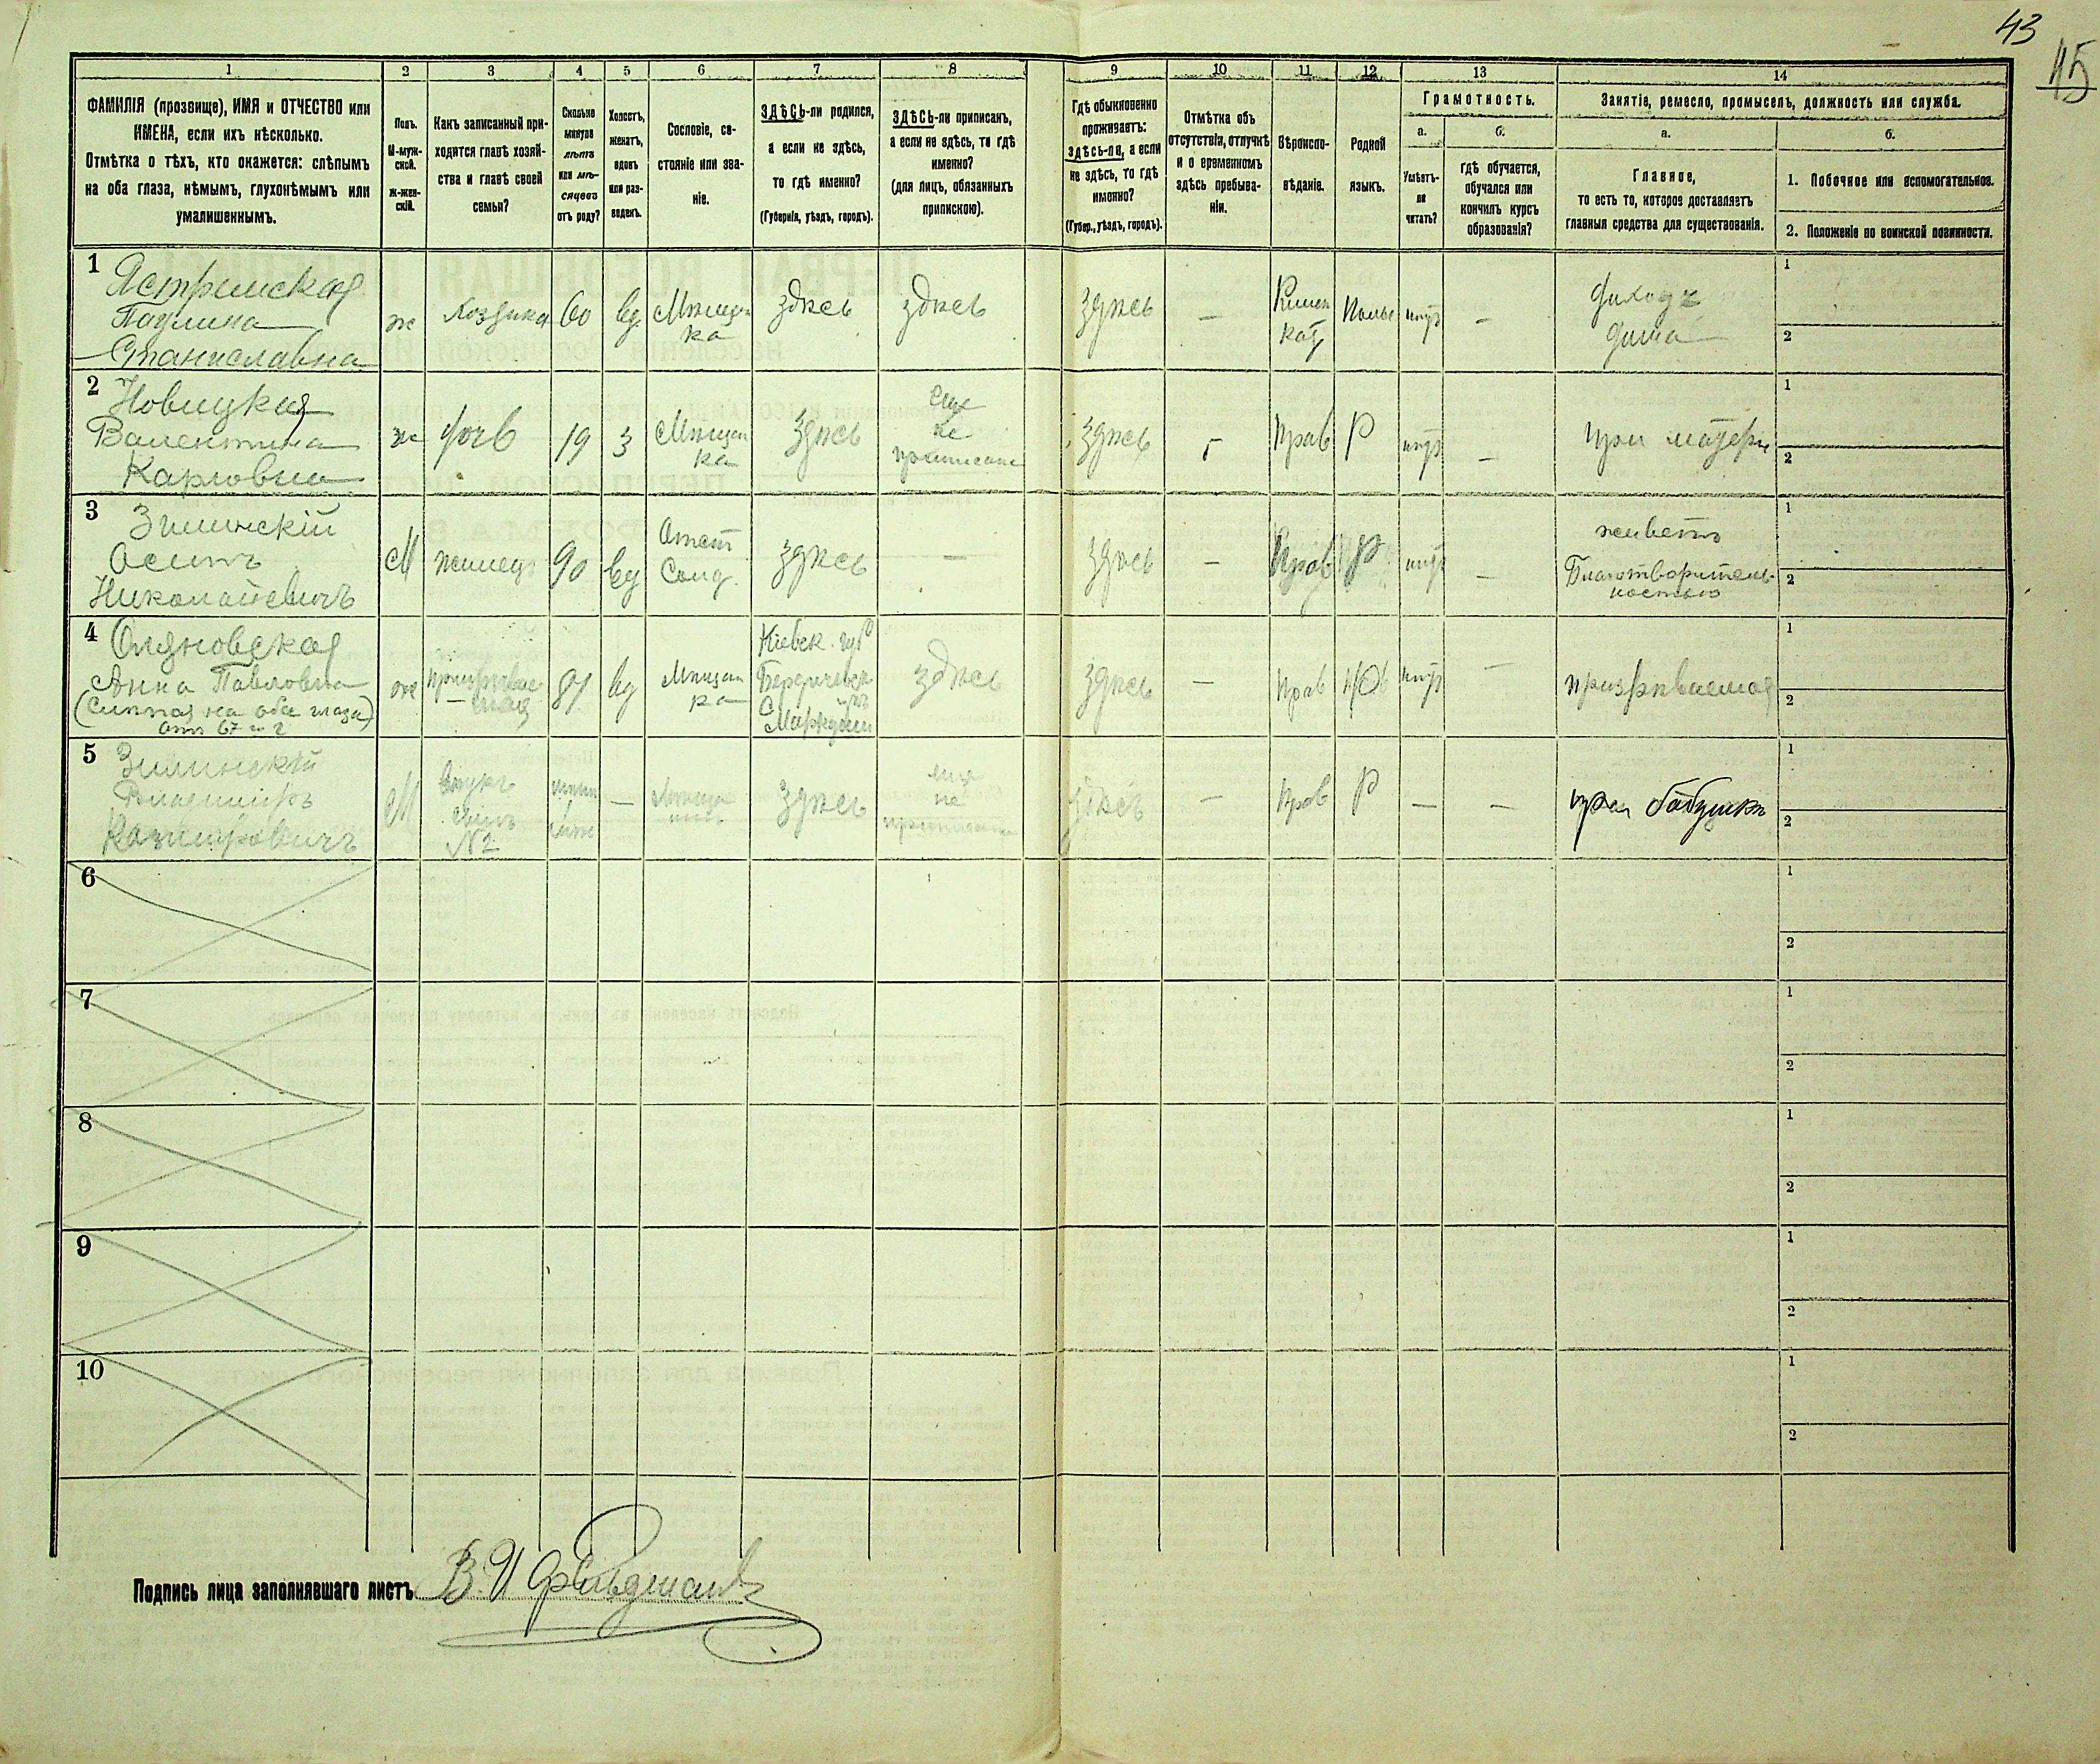 43
45
1 2 3 4 5 6 7 8 9 10 11 12 13 14
ФАМИЛІЯ (прозвище), ИМЯ и ОТЧЕСТВО или
ИМЕНА, если ихъ нѣсколько.
Отмѣтка о тѣхъ, кто окажется: слѣпымъ
на оба глаза, нѣмымъ, глухонѣмымъ или
умалишеннымъ.
Полъ.
М-муж-
ской.
Ж-жен-
скій.
Какъ записанный при-
ходится главѣ хозяй-
ства и главѣ своей
семьи?
Сколько
минуло
лѣтъ
или мѣ-
сяцевъ
отъ роду?
Холостъ,
женатъ,
вдовъ
или раз-
веденъ.
Сословіе, со-
стояніе или зва-
ніе.
ЗДѢСЬ-ли родился,
а если не здѣсь,
то гдѣ именно?
(Губернія, уѣздъ, городъ).
ЗДѢСЬ-ли приписанъ,
а если не здѣсь, то гдѣ
именно?
(для лицъ, обязанныхъ
припискою).
Гдѣ обыкновенно
проживаетъ:
здѣсь-ли, а если
не здѣсь, то гдѣ
именно?
(Губер., уѣздъ, городъ).
Отмѣтка объ
отсутствіи, отлучкѣ
и о временномъ
здѣсь пребыва-
ніи.
Вѣроиспо-
вѣданіе.
Родной
языкъ.
Грамотность.
а.
Умѣетъ-
ли
читать?
б.
гдѣ обучается,
обучался или
кончилъ курсъ
образованія?
Занятіе, ремесло, промыселъ, должность или служба.
а.
Главное,
то есть то, которое доставляетъ
главныя средства для существованія.
б.
1. Побочное или вспомогательное.
2. Положеніе по воинской повинности.
1
Паулина
Станиславна
ж
Хозяйка
60
вд
Мѣщан
ка
здѣсь
здѣсь
здѣсь
—
Римск
кат
Польс
нѣтъ
—
дома
1
2
2
Новицкая
Валентина
Карловна
ж
дочь
19
З
Мѣщан
ка
здѣсь
еще
не
приписана
здѣсь
Прав
Р
нѣтъ
—
при матери
1
2
3
Зилинскій
Осипъ
Николаевичъ
М
жилецъ
90
вд
Отст
Солд.
здѣсь
—
здѣсь
—
Прав
Р
нѣтъ
—
живетъ
Благотворитель-
ностью
1
2
4
Анна Павловна
(слѣпая на оба глаза)
ж
81
вд
Мѣщан
ка
Кіевск. губ
Бердичевск
здѣсь
здѣсь
—
Прав
нѣтъ
—
призрѣваемая
1
2
5
Зилинскій
Владиміръ
Казиміровичъ
М
внукъ
сынъ
№2
—
здѣсь
еще
не
здѣсь
—
Прав
Р
—
—
при бабушкѣ
1
2
6
1
2
7
1
2
8
1
2
9
1
2
10
1
2
Подпись лица заполнявшаго листъ